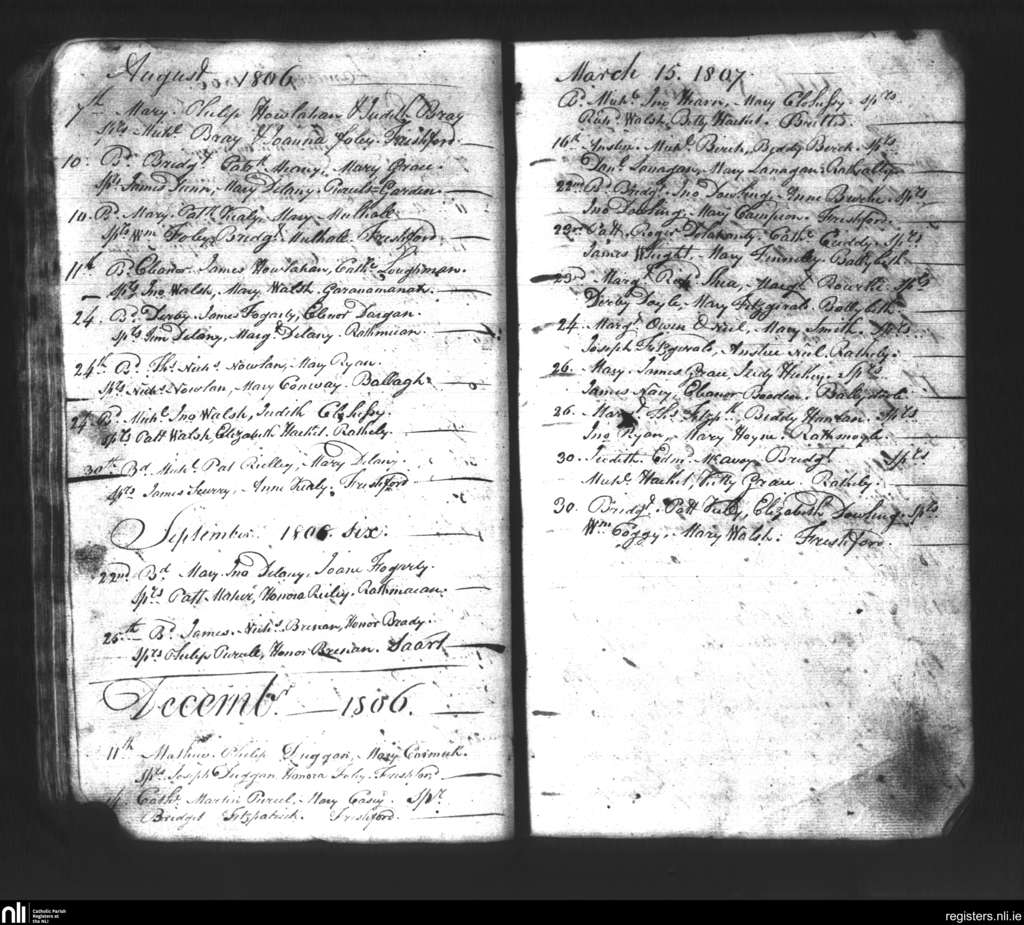 August 1806
7th Mary. Philip Howlahan & Judith Bray
Spts Michl Bray & Joanna Foley Freshford
10. Bd Bridgt Patk Meany, Mary Grace.
Spts James Dunn, Mary Delany
10. Bd Mary. Patk Mary Mulhall
Spts Wm Foley Bridgt Mulhall. Freshford
11th Bd Eleanor. James Howlahan, Cathe Loughman.
Spts Jno Walsh, Mary Walsh.
24. Bd Derby James Fogarty, Elenor Dargan.
Spts Jim Delany, Margt Delany. Rathmican
24th Bd Ths Nichs Nowlan, Mary Ryan.
Spts Nichs Nowlan, Mary Conway. Ballagh
24 Bd Michl Jno Walsh, Judith Clohesy.
Spts Patt Walsh, Elizabeth Hacket. Rathely.
30th Bd Michl Pat Rielley, Mary Delany
Spts James Anne Freshford
September 1806. six.
22nd Bd Mary. Jno Delany. Joane Fogerty.
Spts Patt Maher, Honora Reiley. Rathmacan.
25th Bd James. Nichs Brenan, Honor Brady.
Spts Philip Purcell, Honor Brenan. Saart
Decembr. 1806.
11th Mathew Philip Duggan, Mary Cormick.
Spts Joseph Duggan Honora Foley. Freshford
14 Cathe Martin Purcel. Mary Casey. Spr
Bridget Fitzpatrick. Freshford.
March 15. 1807.
Bd Michl Jno Hearn, Mary Clohesy. Spts
Richd Walsh, Betty Hacket.
16th Anstin. Michl Birch, Biddy Berch. Spts
Danl Lanagan, Mary Lanagan.
22nd Bd Bridgt Jno Dowling, Anne Burke. Spts
Jno Dowling. Mary Campion. Freshford.
23rd Patt. Roger Delahunty. Cathe Cuddy. Spts
James Wright. Mary
23rd Margt Shea, Margt Rourke. Spts
Derby Doyle, Mary Fitzgirals
24. Margt Owen O Neil, Mary Smith. Spts
Joseph Fitzgerals, Anstice Neil. Rathely.
26. Mary. James Grace, Spts
James Eleanor
26. Ths Biddy Spts
Jno Ryan, Mary Hoyne. Rathmoyle.
30. Judith. Edmd McAvoy Bridgt Spts
Michl Hacket, Kitty Grace. Rathely.
30. Bridgt. Patt Elizabeth Dowling. Spts
Wm Coggy, Mary Walsh. Freshford.
nli Catholic Parish
Registers at
the NLI
registers.nli.ie